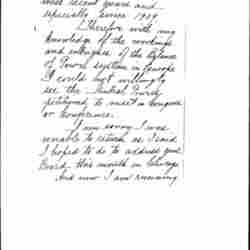 most recent years and
especially since 1909.
Therefore with my
knowledge of the workings
and intrigues of the Balance
of Power system in Europe
I could not willingly
see the Neutral Powers
petitioned to meet in Congress
or Conference.
I am sorry I was
unable to return as I said
I hoped to do to address your
Board this month in Chicago
And now I am running